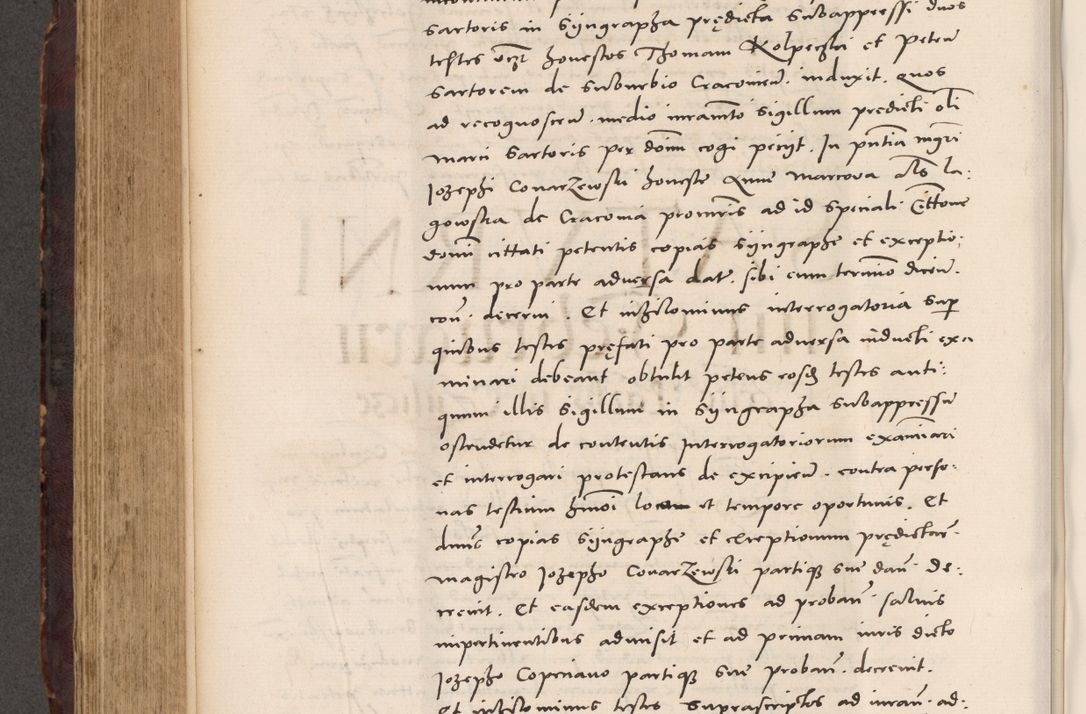 sartoris in syngrapha prędicta subappressi duos
testes vcz honestos Thomam Kolpeczki et Petrum
sartorem de suburbio Cracovien. induxit. quos
ad recognoscen. medio iuramto sigillum predicti olī
Marci Sartoris per dom̄ cogi peciit. In pn̄tia mgrī
Jozephi Covarzewski honeste Anne Marcova als la-
gowska de Cracovia procuris ad id speciali Citt̄one
dom̄ cittati petentis copias syngraphe et exceptio-
num pro parte adversa dat. sibi cum termino dicen.
con. decerni. Et nihilominus interrogatoria sup
quibus testes pręfati pro parte adversa inducti exa
minari debeant obtulit petens eosdē testes anti-
quam illis sigillum in syngrapha subappressū
ostendetur de contentis Interrogatoriorum examinari
et interrogari protestans de excipien. contra perso-
nas testium hmōi loco et tempore oportunis. Et
dnūs copias syngraphe et exceptionum prędictar.
magistro Jozepho Covarzewski partique sue dan. de-
crevit. Et easdem exceptiones ad proban. salvis
impertinentibus admisit et ad primam iuris dicto
Jozepho Copenavo partique sue proban. decrevit.
Et nihilominus testes suprascriptos ad iuran. ad-